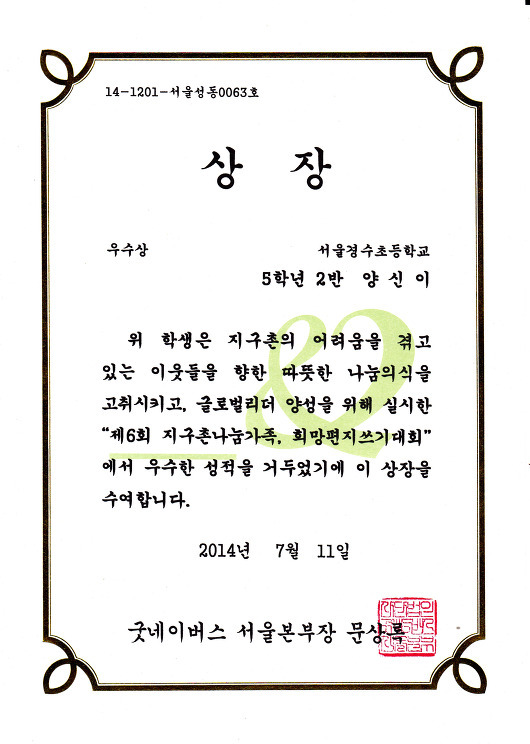 14-1201-서울성동0063호
상 장
우수상 서울경수초등학교
5학년 2반 양 신 이
위 학생은 지구촌의 어려움을 겪고
있는 이웃들을 향한 따뜻한 나눔의식을
고취시키고, 글로벌리더 양성을 위해 실시한
“제6회 지구촌나눔가족, 희망편지쓰기대회”
에서 우수한 성적을 거두었기에 이 상장을
수여합니다.
2014년 7월 11일
굿네이버스 서울본부장 문상록